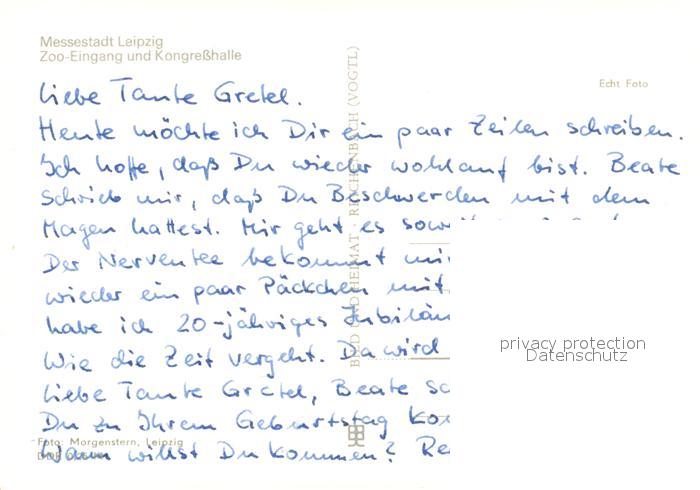 Messestadt Leipzig
Zoo-Eingang und Kongreßhalle
Echt Foto
Liebe Tante Gretel.
Heute möchte ich Dir ein paar Zeilen schreiben.
Ich hoffe, daß Du wieder wohlauf bist. Beate
schrieb mir, daß Du Beschwerden mit dem
Magen hattest. Mir geht es
Der Nerventee bekommt
wieder ein paar Päckchen mit
habe ich 20-jähriges
Wie die Zeit vergeht. Da wird
Liebe Tante Gretel, Beate
Du zu Ihrem Geburtstag
Wann willst Du kommen?
BILD UND HEIMAT · REICHENBACH (VOGTL)
privacy protection
Datenschutz
Foto: Morgenstern, Leipzig